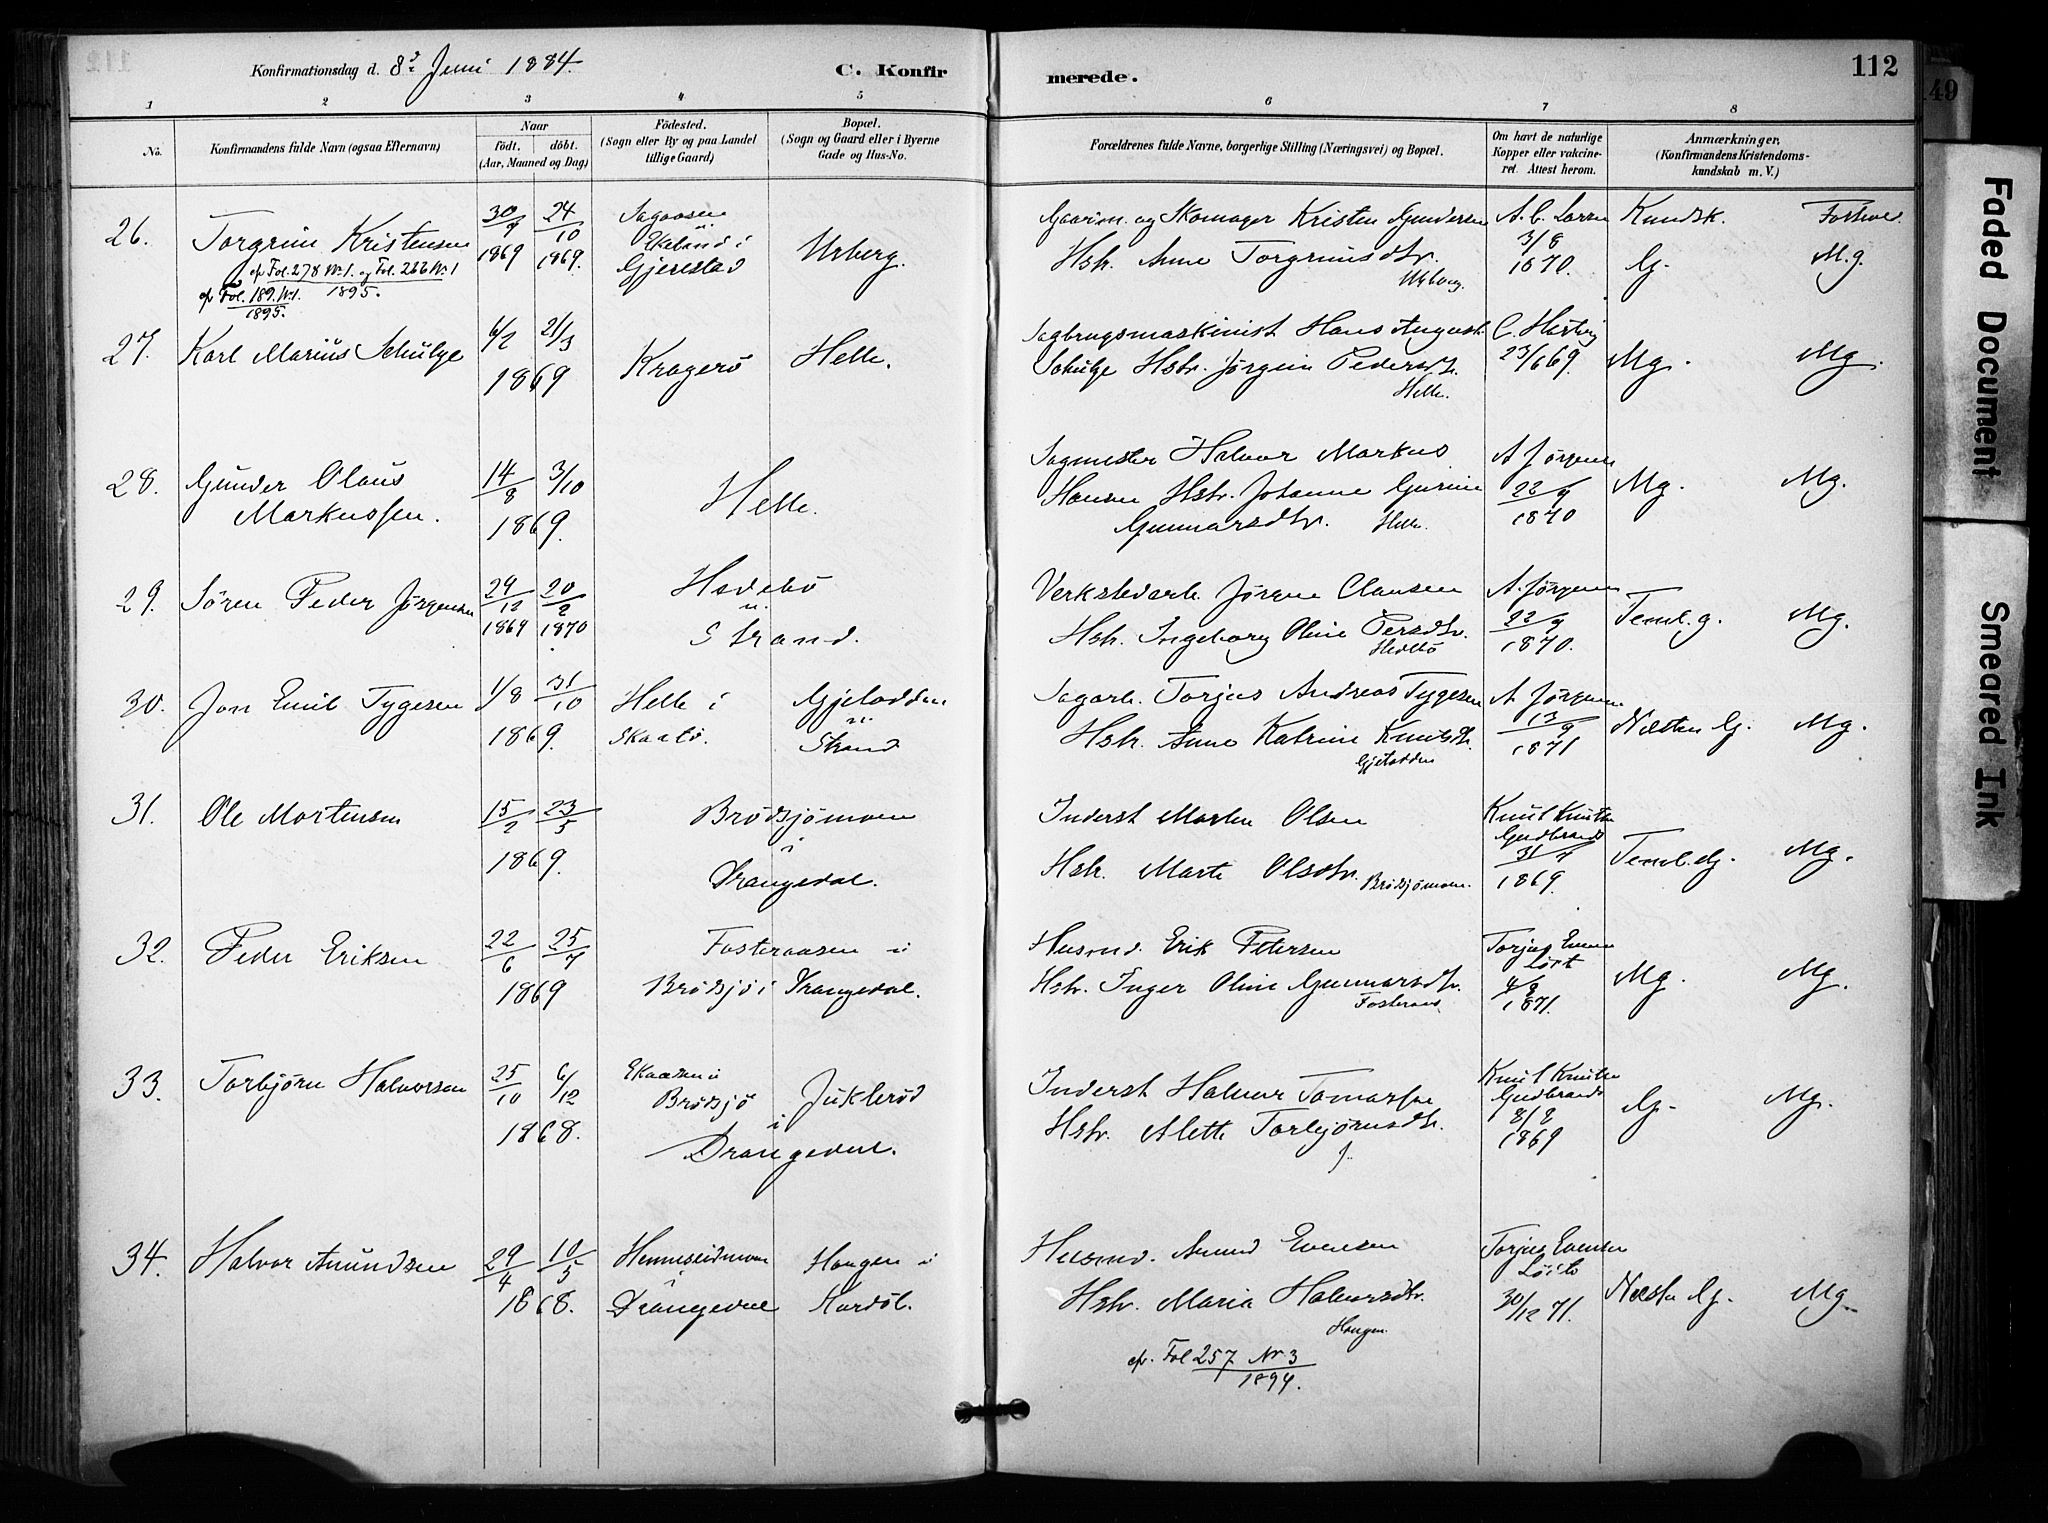 112
Konfirmationsdag d. 8de Juni 1884.
C. Konfirmerede.
1 2 3 4 5 6 7 8
No.
Konfirmandens fulde Navn (ogsaa Efternavn)
Naar
födt. döbt.
(Aar, Maaned og Dag)
Födested.
(Sogn eller By og paa Landet
tillige Gaard)
Bopæl.
(Sogn og Gaard eller i Byerne
Gade og Hus-No.
Forældrenes fulde Navne, borgerlige Stilling (Næringsvei) og Bopæl.
Om havt de naturlige
Kopper eller vakcine-
ret. Attest herom.
Anmærkninger.
(Konfirmandens Kristendoms-
kundskab m. V.)
26. Torgrim Kristensen 30/9 1869 24/10 1869.
Ekeland i
Gjerestad
Gaarm. og Skomager Kristen Gundersen
Hstr. Anne Torgrimsdtr.
3/8 1870. Kundsk. G. M.g.
cfr Fol. 278 No 1. og Fol. 266 No 1
1895.
cfr Fol. 189. No 1.
1895.
27. Karl Marius Schulze 6/2 21/3 1869 Kragerö Helle.
Sagbrugsmaskinist Hans August
Schulze Hstr. Jörgine Pedersdtr.
Helle.
23/6 69. Mg. Mg.
28. Gunder Olaus
Markussen. 14/8 3/10 1869. Helle.
Sagmester Halvor Markus
Hansen Hstr. Johanne Gurine
Gunnarsdtr. Helle.
A Jörgensen 22/9 1870 Mg. Mg.
29. Sören Peder Jörgensen 29/12 1869 20/2 1870
Hedebö
u.
Strand.
Verkstedarb. Jörgen Clausen
Hstr. Ingeborg Oline Persdtr.
Hedebö
A. Jörgensen 22/9 1870. Teml. g. Mg.
30. Jon Emil Tygesen 1/8 31/10 1869.
Helle i
Skaatö.
Gjetodden
u.
Strand
Sagarb. Torjus Andreas Tygesen
Hstr. Anne Katrine Knutsdtr.
Gjetodden
A Jörgensen 13/9 1871 Næsten G. Mg.
31. Ole Mortensen 15/2 23/5 1869.
Brödsjömoen
i
Drangedal.
Inderst Morten Olsen
Hstr. Marte Olsdtr. Brödsjömoen.
Knut Knutsen
Gudbrands
1869. Teml. G. Mg.
32. Peder Eriksen 22/6 25/7 1869
Fosteraasen u
Brödsjö i Drangedal.
Husmd. Erik Petersen
Hstr. Inger Oline Gunnarsdtr.
Fosteraas.
Torjus Evensen
1871. Mg. Mg.
33. Torbjörn Halvorsen 25/10 6/12 1868.
Ekaasen i
Brödsjö Jukleröd
i
Drangedal.
Inderst Halvor Tomassen
Hstr. Alette Torbjörnsdtr.
J.
Knut Knutsen
Gudbrands
8/2 1869 G. Mg.
34. Halvor Amundsen 29/4 10/5 1868.
Henneseidmoen
i
Drangedal
Haugen i
Husmd. Amund Evensen
Hstr. Maria Halvorsdtr.
Haugen.
Torjus Evensen
30/12 71. Næsten G. Mg.
cfr. Fol 257 Nr 3
1894.
49
Faded Document
Smeared Ink